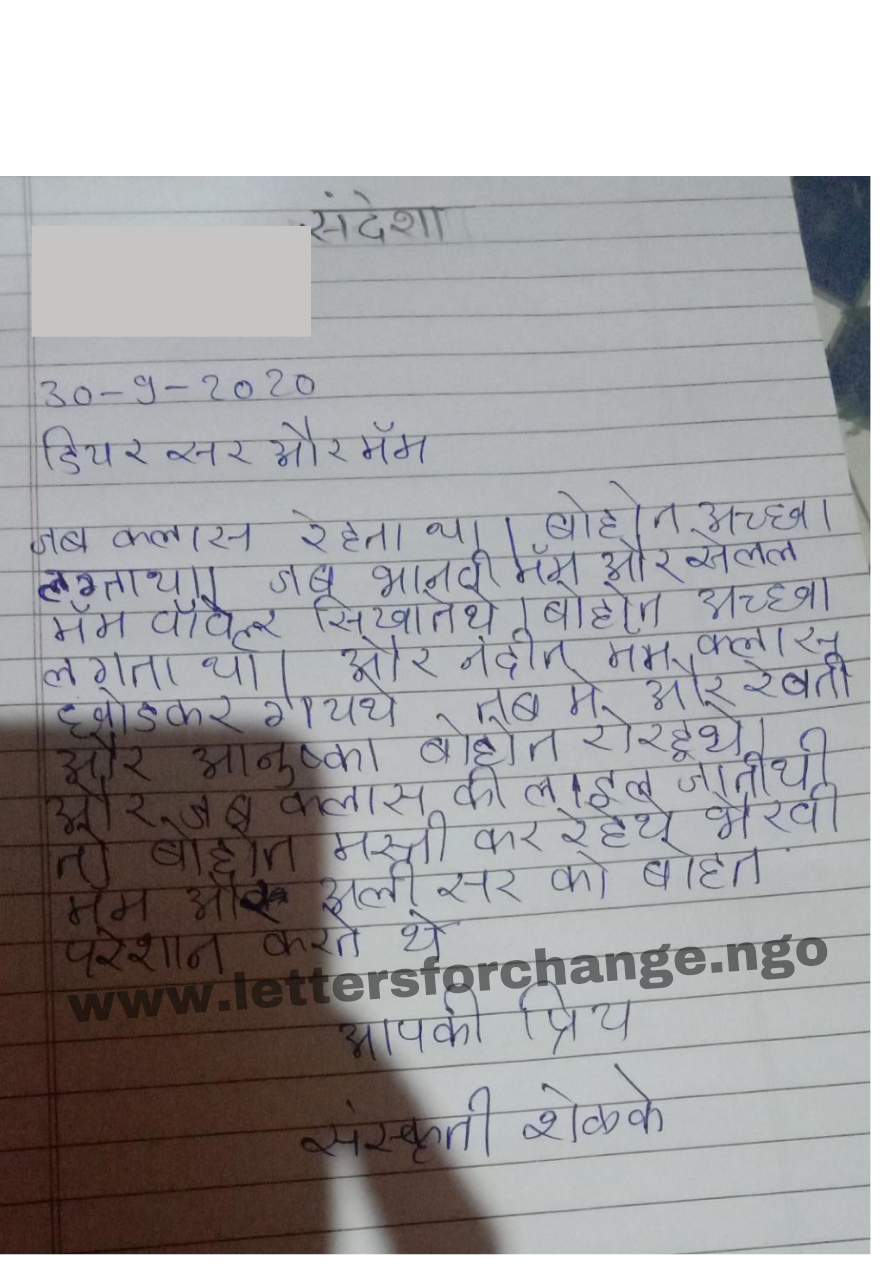 संदेशा
30-9-2020
डियर सर और मॅम
जब क्लास रेहता था। बोहोत अच्छा
लगता था। जब भानवी मॅम और सेलल
मॅम वॉवेल्र सिखातेथे। बोहोत अच्छा
लगता था। और नंदीन मॅम क्लास
छोडकर गयथे तब मे और रेवती
और आनुष्का बोहोत रोरहेथे।
और जब क्लास की लाइल जातीथी
तो बोहोत मस्ती कर रेहेथे भैरवी
मॅम और अली सर को बोहत
परेशान करते थे
www.lettersforchange.ngo
आपकी प्रिय
संस्कृती शेळके